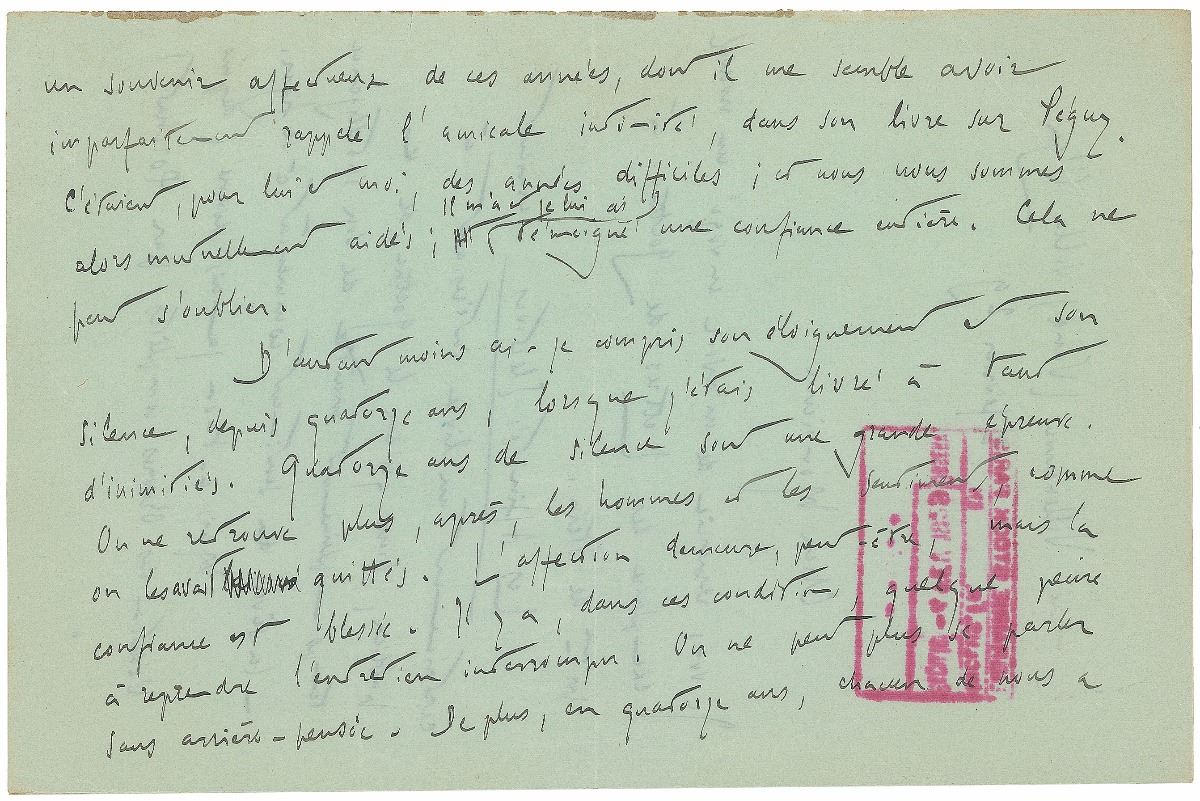 un souvenir affectueux de ces années, dont il me semble avoir
imparfaitement rappelé l'amicale intimité, dans son livre sur Péguy.
C'étaient, pour lui et moi, des années difficiles ; et nous nous sommes
Il m'a et je lui ai
alors mutuellement aidés ; témoigné une confiance entière. Cela ne
peut s'oublier.
D'autant moins ai-je compris son éloignement et son
silence, depuis quatorze ans, lorsque j'étais livré à tant
d'inimitiés. Quatorze ans de silence sont une grande épreuve.
On ne retrouve plus, après, les hommes et les sentiments, comme
on les avait quittés. L'affection demeure, peut-être, mais la
confiance est blessée. Il y a, dans ces conditions, quelque peine
à reprendre l'entretien interrompu. On ne peut plus se parler
sans arrière-pensée. De plus, en quatorze ans, chacun de nous a